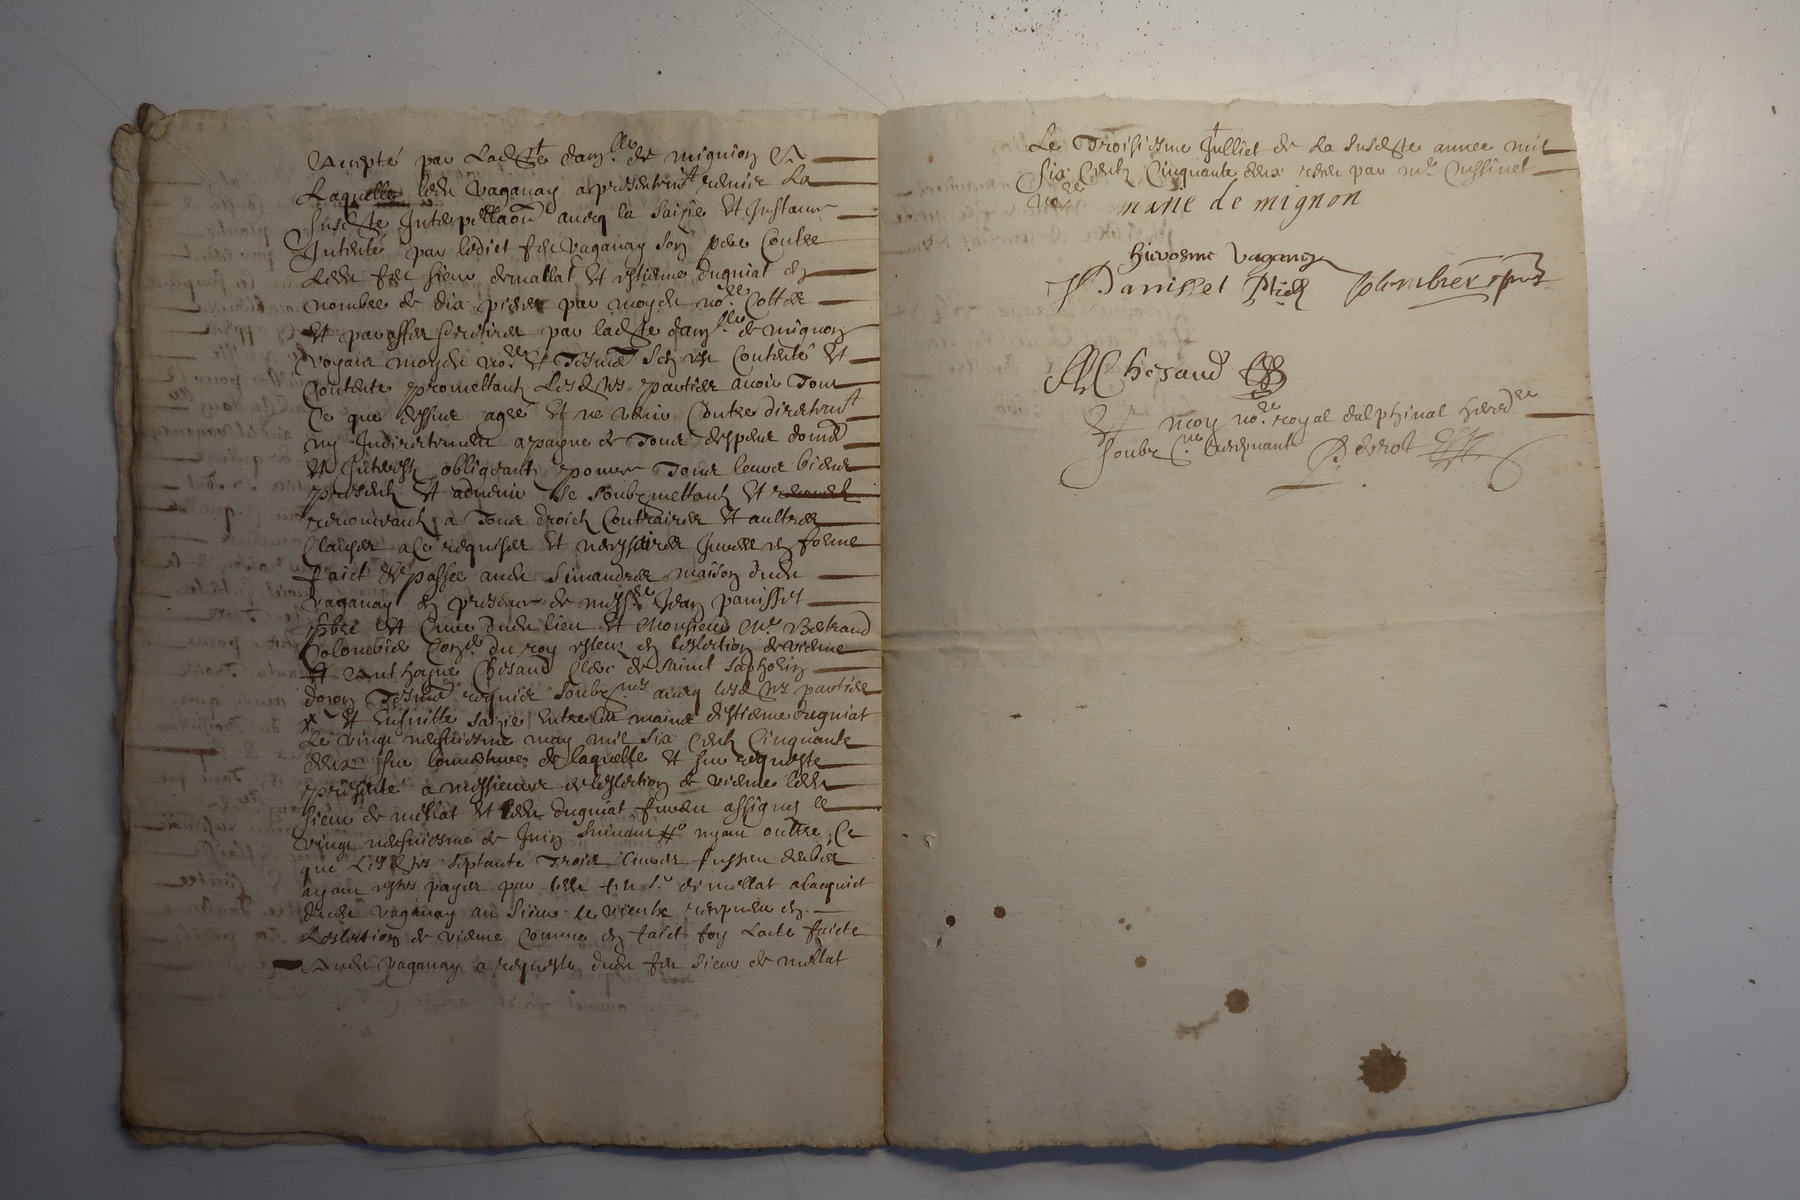 Accepté par Ladte damlle de mignion A
Laquelle ledit Vaganay a presentemt remis La
susdte Interpellaon avecq la saisie Et Instance
Intenté par ledict feu Vaganay son pere Contre
Ledit feu sieur de mallat Et estienne duguiat en
nombre de dix pieces par moyd nore Cottee
Et paraffees retirees par ladte damlle de mignon
voyant moyd nore Et Tesmo Sen est Contenté Et
Contente promettant Lesdtes parties avoir Tout
Ce que dessus agreé Et ne venir Contre directemt
ny Indirectement a payne de Tous despens domd
Et Interestz obligeantz pour ce Tous leurs biens
presentz Et advenir Se soubzmettantz Et
renonceantz a Tous droictz Contraires Et aultres
Clauses a Ce requises Et necessaires Jurées en forme
faict Et passée audit Simandres maison dudit
vaganay en presence de messre Jean panisset
pbre Et Curé dudit lieu Et Monsieur Me Bertrand
Colombier Conser du roy esleu en leslection de vienne
Et Anthoyne Chesaud Clerc de sainct Saphorin
dozon Tesmo requis soubznes avecq lesdtes parties
x Et Ensuitte saisie Entre les mains destienne duguiat
Le vingt neufviesme may mil six Centz Cinquante
deux sur louverture de laquelle Et sur requeste
presenté a messieurs de leslection de vienne ledit
sieur de mellat Et ledit duguiat furent assignes le
vingt neufviesme de Juin suivant # nyant oultre Ce
que Lesdtes septante Trois livres fussent deubes
ayant estes payes par ledit feu Sr de mellat a lacquict
dudit vaganay au sieur le vieux en
Leslection de vienne Comme en faict foy Lacte faicte
Audit vaganay a requeste dudit feu sieur de mellat
Le Troisiesme Julliet de La susdte annee mil
Six Centz Cinquante deux receu par me Cussinet
nore
marie de mignon
hierosme vaganay
J Panisset Ptre Colombier pnt
A Chesaud
Et moy nore royal dalphinal hered.re
soubzne recepvant Perrot